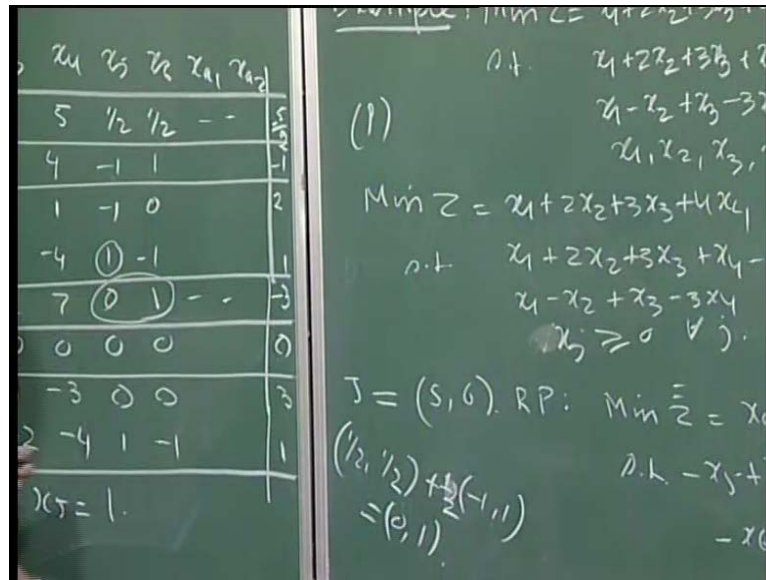 x4 x5 x6 xa1 xa2
5 1/2 1/2 - - 5/2
4 -1 1 -1
1 -1 0 2
-4 1 -1 1
7 0 1 - - -3
0 0 0 0 0
-3 0 0 3
2 -4 1 -1 1
x5 = 1.
Example: Min Z =
s.t. x1 + 2x2 + 3x3 +
(P) x1 - x2 + x3 - 3x
x1, x2, x3,
Min Z = x1 + 2x2 + 3x3 + 4x4
s.t. x1 + 2x2 + 3x3 + x4 -
x1 - x2 + x3 - 3x4
xj ≥ 0 ∀ j.
J = (5, 6). RP: Min Z =
s.t. - x5 +
(1/2, 1/2) + 1/2(-1, 1)
= (0, 1)